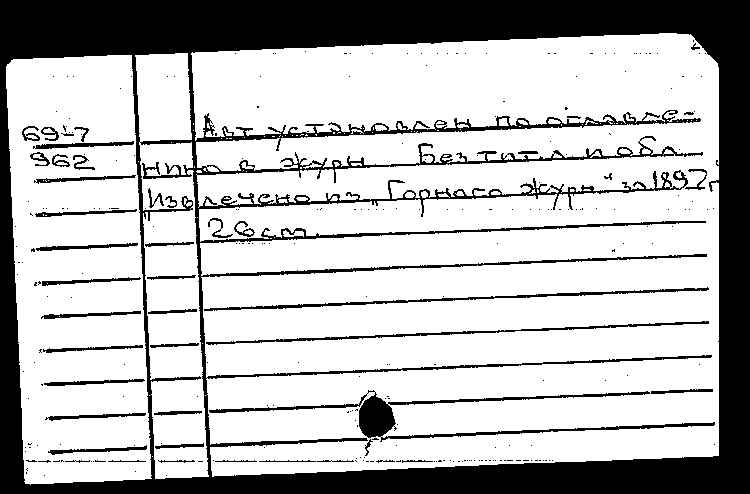 2
6947 Авт установлен по оглавле-
962 нию в журн Без тит.л и обл.
"Извлечено из „Горнаго журн" за 1892 г"
26 cm.